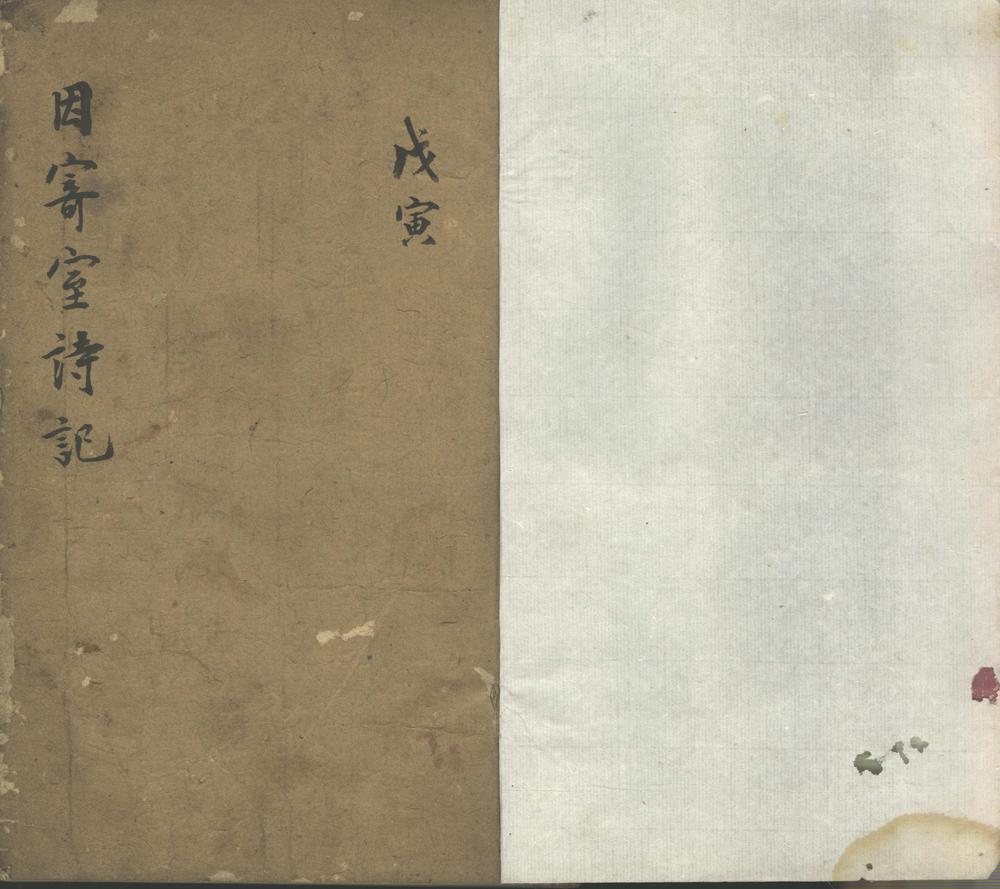 戊寅
因寄室詩記